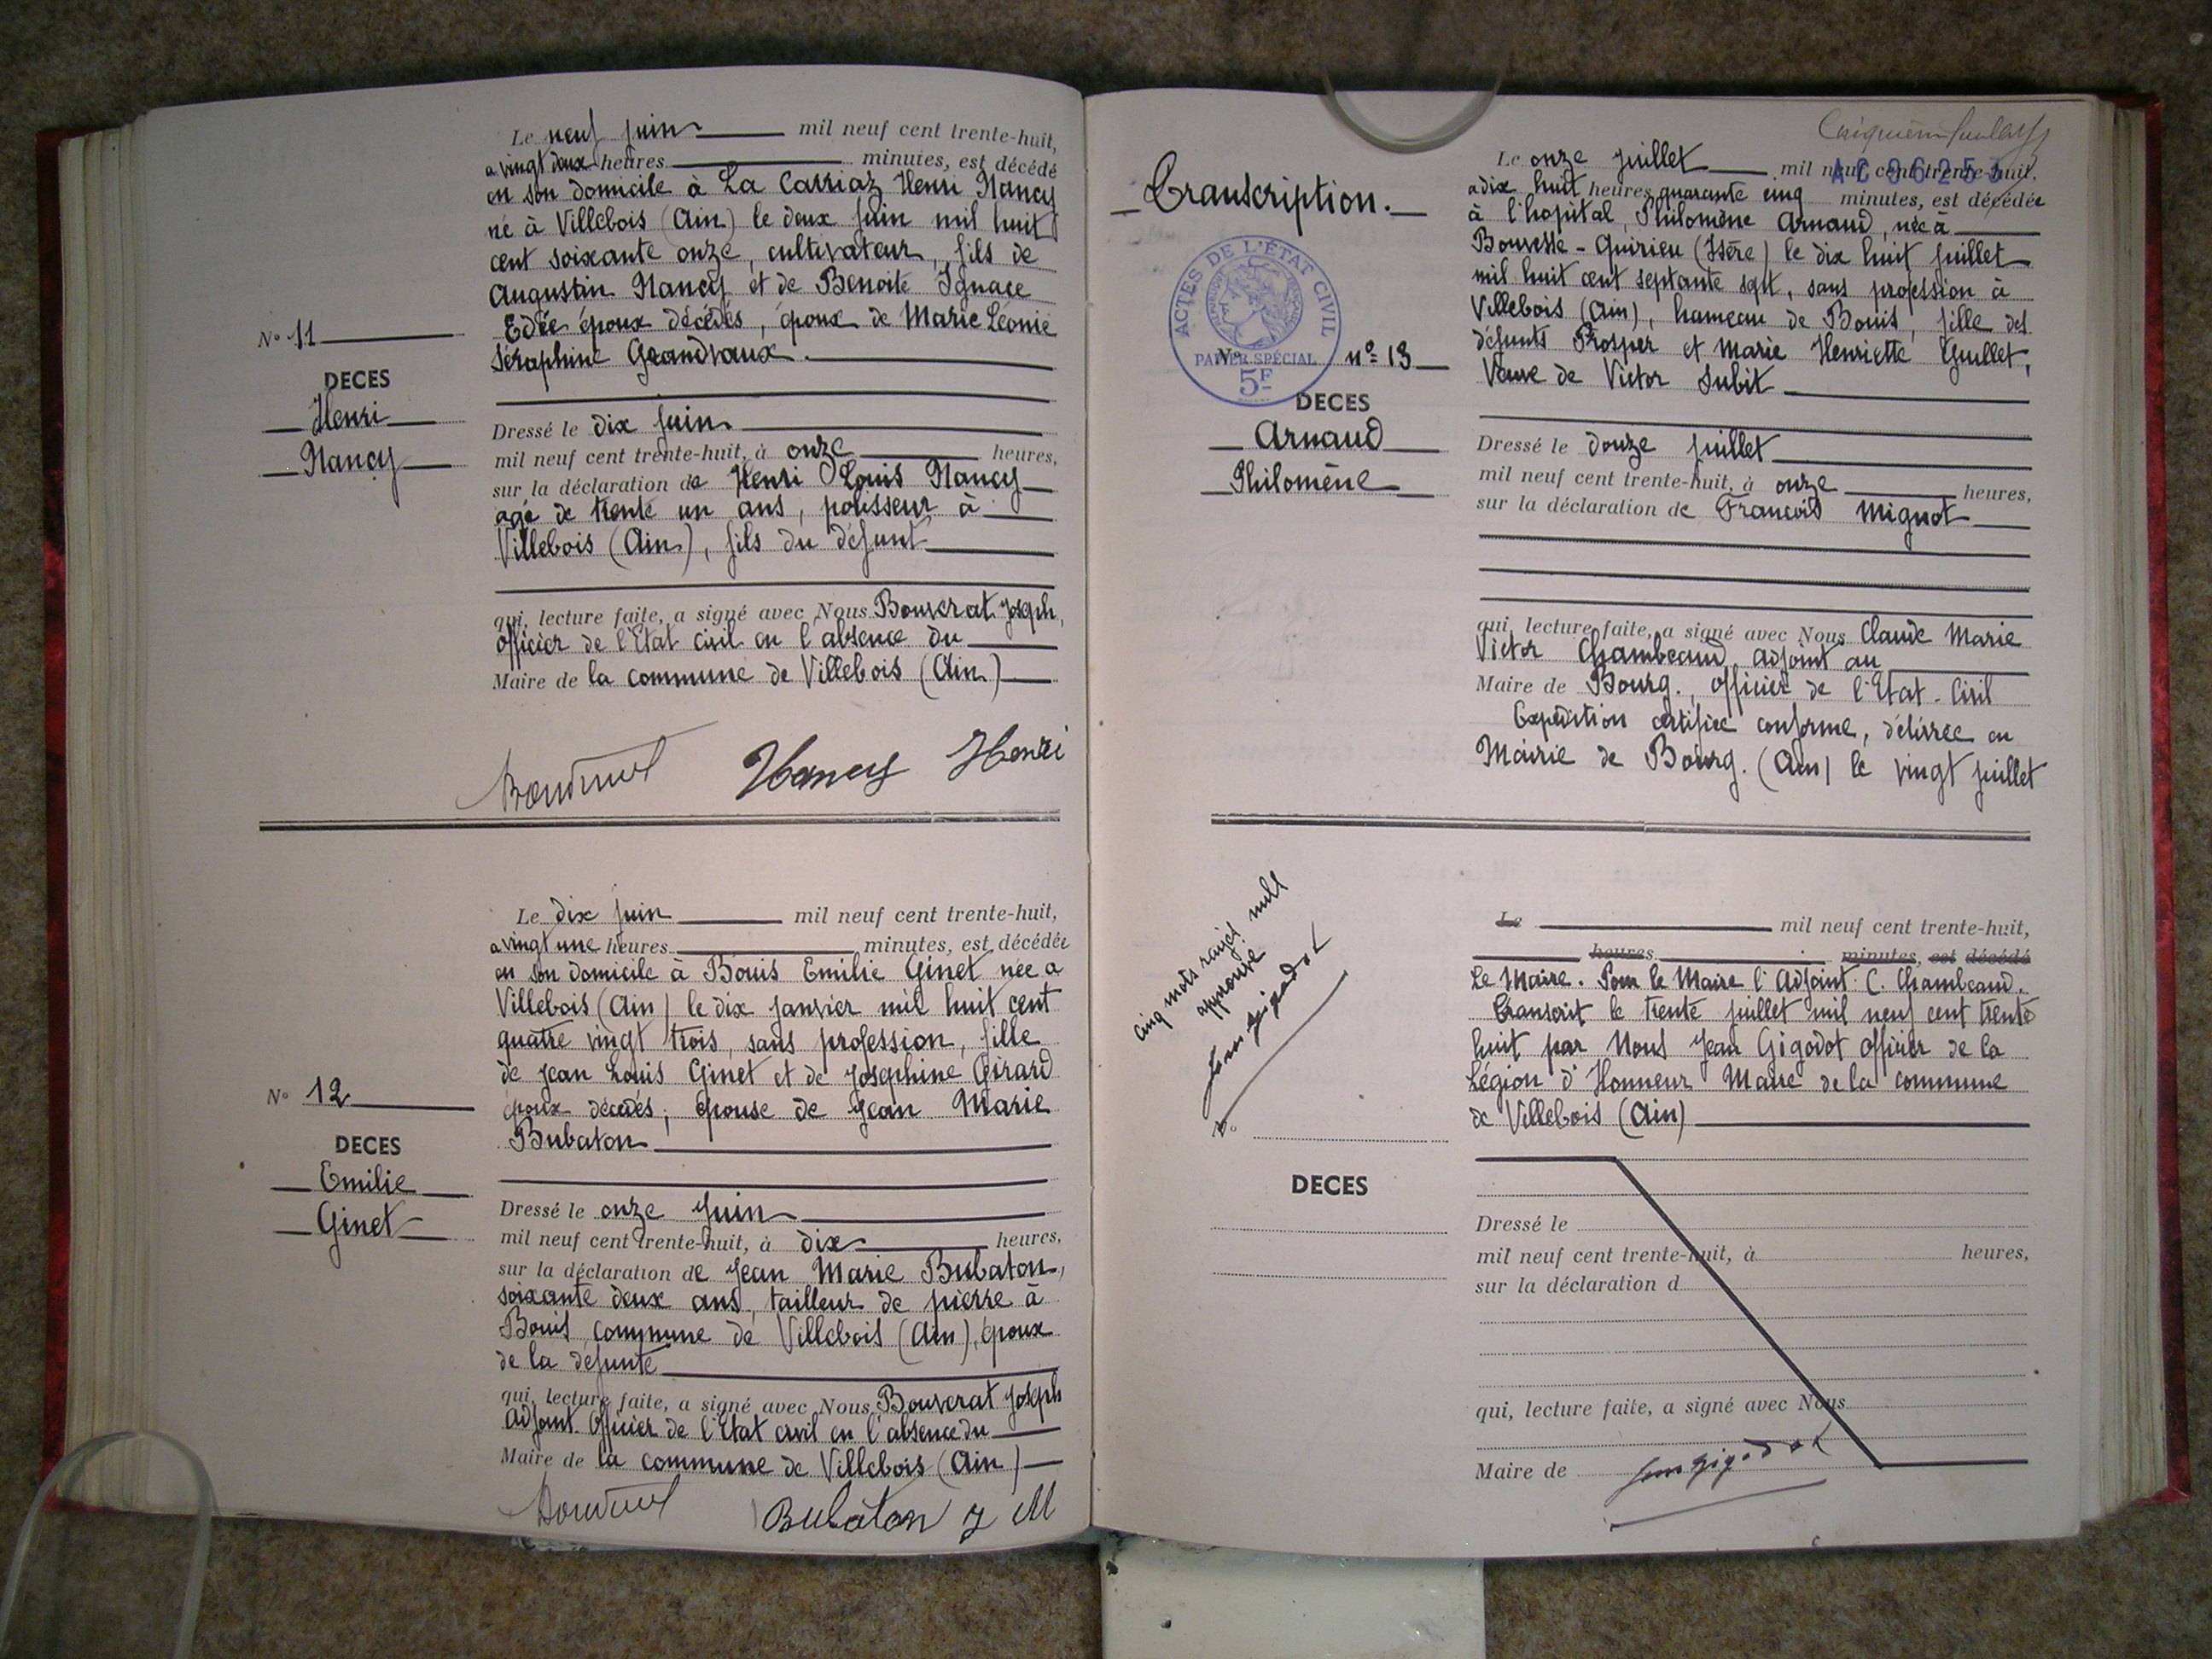 Le neuf juin mil neuf cent trente-huit,
a vingt deux heures minutes, est décédé
en son domicile à La Carriaz Henri Nancy
né à Villebois (Ain) le deux juin mil huit
cent soixante onze, cultivateur, fils de
Augustin Nancy et de Benoite Ignace
Edée époux décédés, époux de Marie Léonie
Séraphine Grandvaux.
N° 11
DECES
Henri
Nancy
Dressé le dix juin
mil neuf cent trente-huit, à onze heures,
sur la déclaration de Henri Louis Nancy
agé de trente un ans, polisseur à
Villebois (Ain), fils du défunt
qui, lecture faite, a signé avec Nous Bouverat Joseph,
officier de l'Etat civil en l'absence du
Maire de la commune de Villebois (Ain)
Nancy Henri
Le dix juin mil neuf cent trente-huit,
a vingt une heures minutes, est décédée
en son domicile à Bouis Emilie Ginet née a
Villebois (Ain) le dix janvier mil huit cent
quatre vingt trois, sans profession, fille
de Jean Louis Ginet et de Josephine Girard
époux décédés, épouse de Jean Marie
Bubaton
N° 12
DECES
Emilie
Ginet
Dressé le onze Juin
mil neuf cent trente-huit, à dix heures,
sur la déclaration de Jean Marie Bubaton,
soixante deux ans, tailleur de pierre à
Bouis commune de Villebois (Ain), époux
de la défunte
qui, lecture faite, a signé avec Nous Bouverat Joseph
adjoint officier de l'Etat civil en l'absence du
Maire de la commune de Villebois (Ain)
Bubaton J M
Transcription.
ACTES DE L'ÉTAT CIVIL
PAPIER SPÉCIAL
5F
N° n° 13
DECES
Arnaud
Philomène
Le onze juillet mil neuf cent trente-huit.
a dix huit heures quarante cinq minutes, est décédée
à l'hopital, Philomène Arnaud, née à
Bouvesse-Quirieu (Isère) le dix huit juillet
mil huit cent septante sept, sans profession à
Villebois (Ain), hameau de Bouis, fille des
défunts Prosper et Marie Henriette Guillet,
Veuve de Victor Subit
Dressé le douze juillet
mil neuf cent trente-huit, à onze heures,
sur la déclaration de François Mignot
qui, lecture faite, a signé avec Nous Claude Marie
Victor Chambeaud, adjoint au
Maire de Bourg, officier de l'Etat-Civil
Expédition certifiée conforme, délivrée en
Mairie de Bourg. (Ain) le vingt juillet
cinq mots rayés nuls
approuvé
Jean Gigodot
Le mil neuf cent trente-huit,
heures minutes, est décédé
Le Maire. Pour le Maire l'Adjoint C. Chambeaud.
Transcrit le trente juillet mil neuf cent trente
huit par Nous Jean Gigodot officier de la
Légion d'Honneur Maire de la commune
de Villebois (Ain)
N°
DECES
Dressé le
mil neuf cent trente-huit, à heures,
sur la déclaration d
qui, lecture faite, a signé avec Nous
Maire de
Jean Gigodot